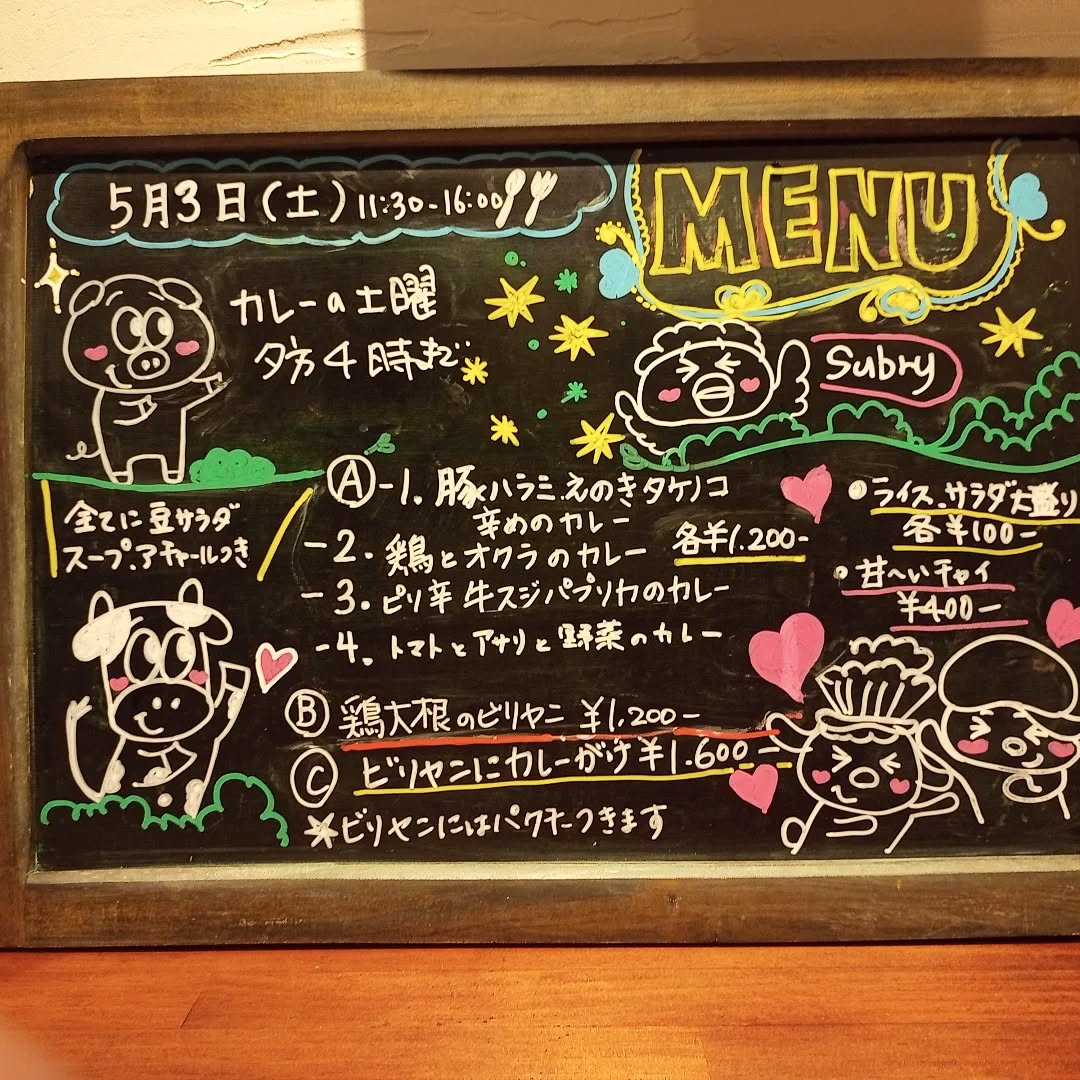 5月3日(土)11:30-16:00
MENU
カレーの土曜
夕方4時まで
Subry
全てに豆サラダ
スープ.アチャールつき
Ⓐ-1.豚ハラミ.えのきタケノコ
辛めのカレー
-2.鶏とオクラのカレー
各¥1.200-
-3.ピリ辛牛スジパプリカのカレー
-4.トマトとアサリと野菜のカレー
•ライス.サラダ大盛り
各¥100-
•甘〜いチャイ
¥400-
Ⓑ鶏大根のビリヤニ ¥1,200-
Ⓒビリヤニにカレーがけ¥1.600-
※ビリヤニにはパクチーつきます